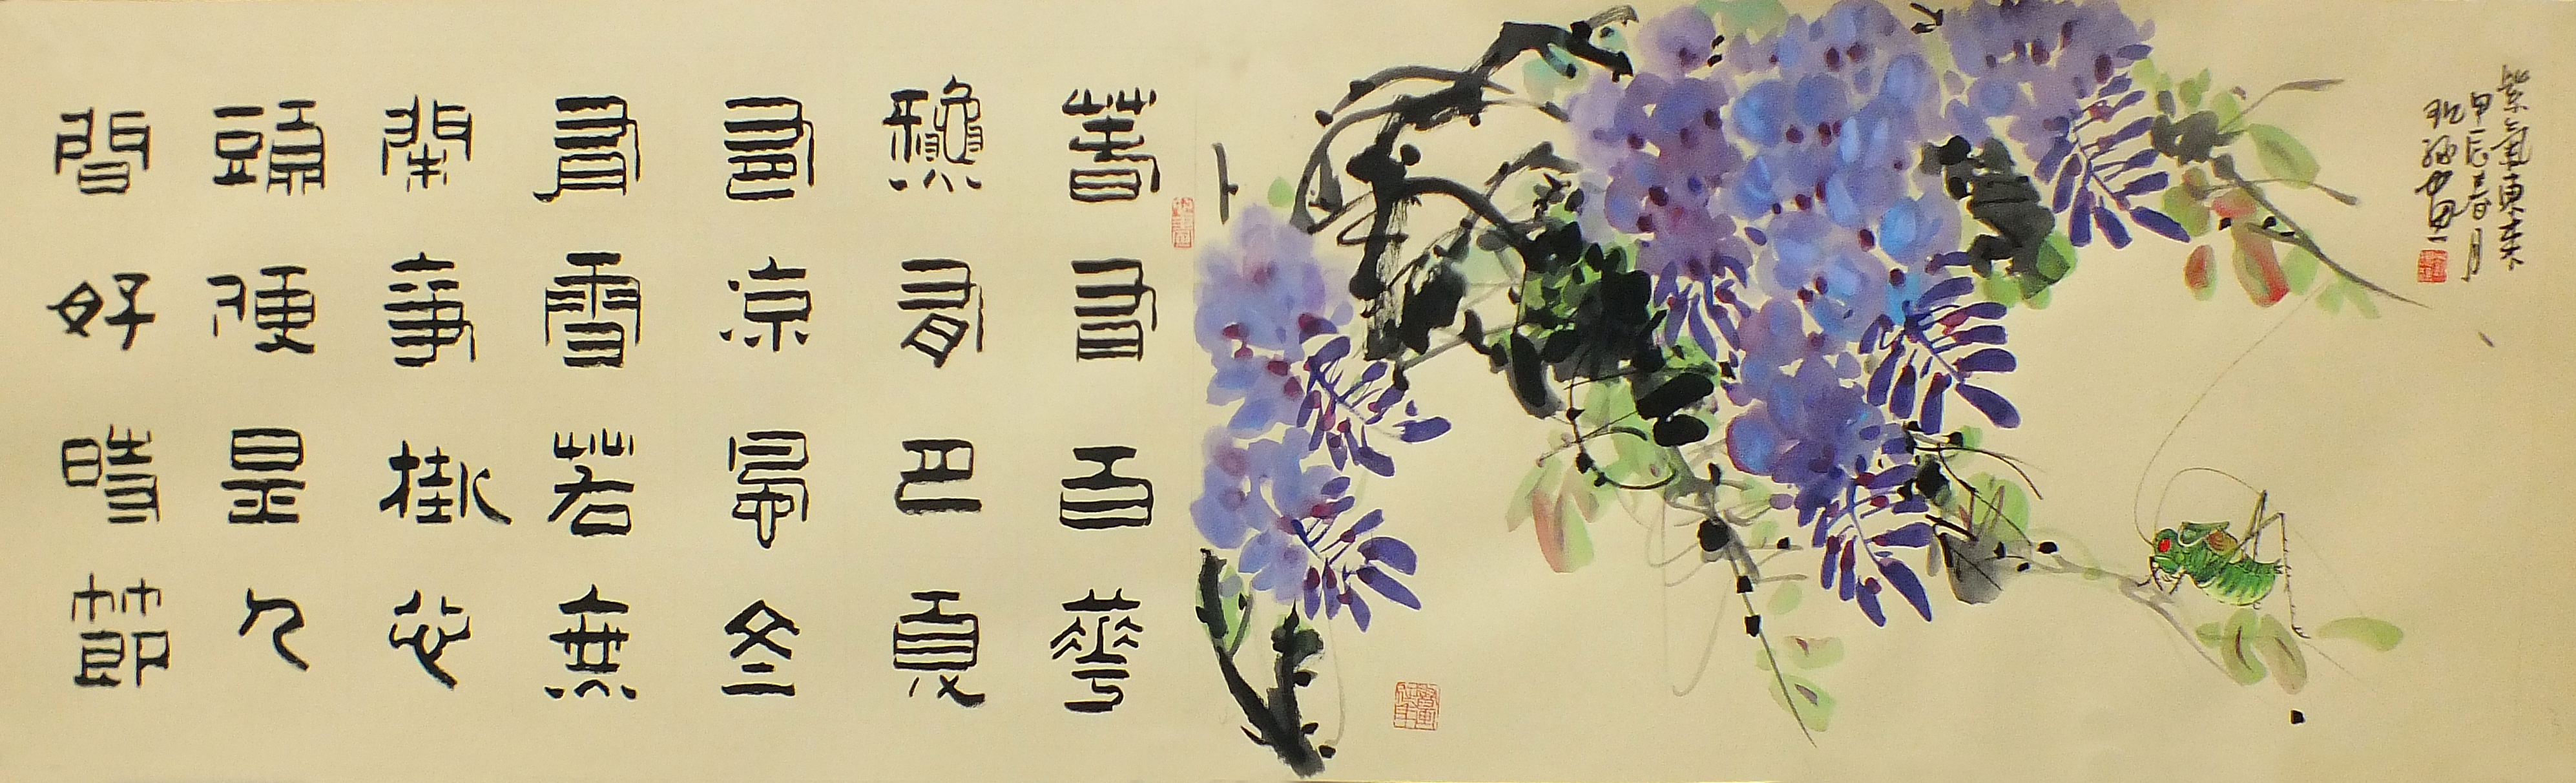 紫氣東來
甲辰春月
春有百華
龝有月夏
有涼風冬
有雪若無
閑事掛心
頭便是人
間好時節